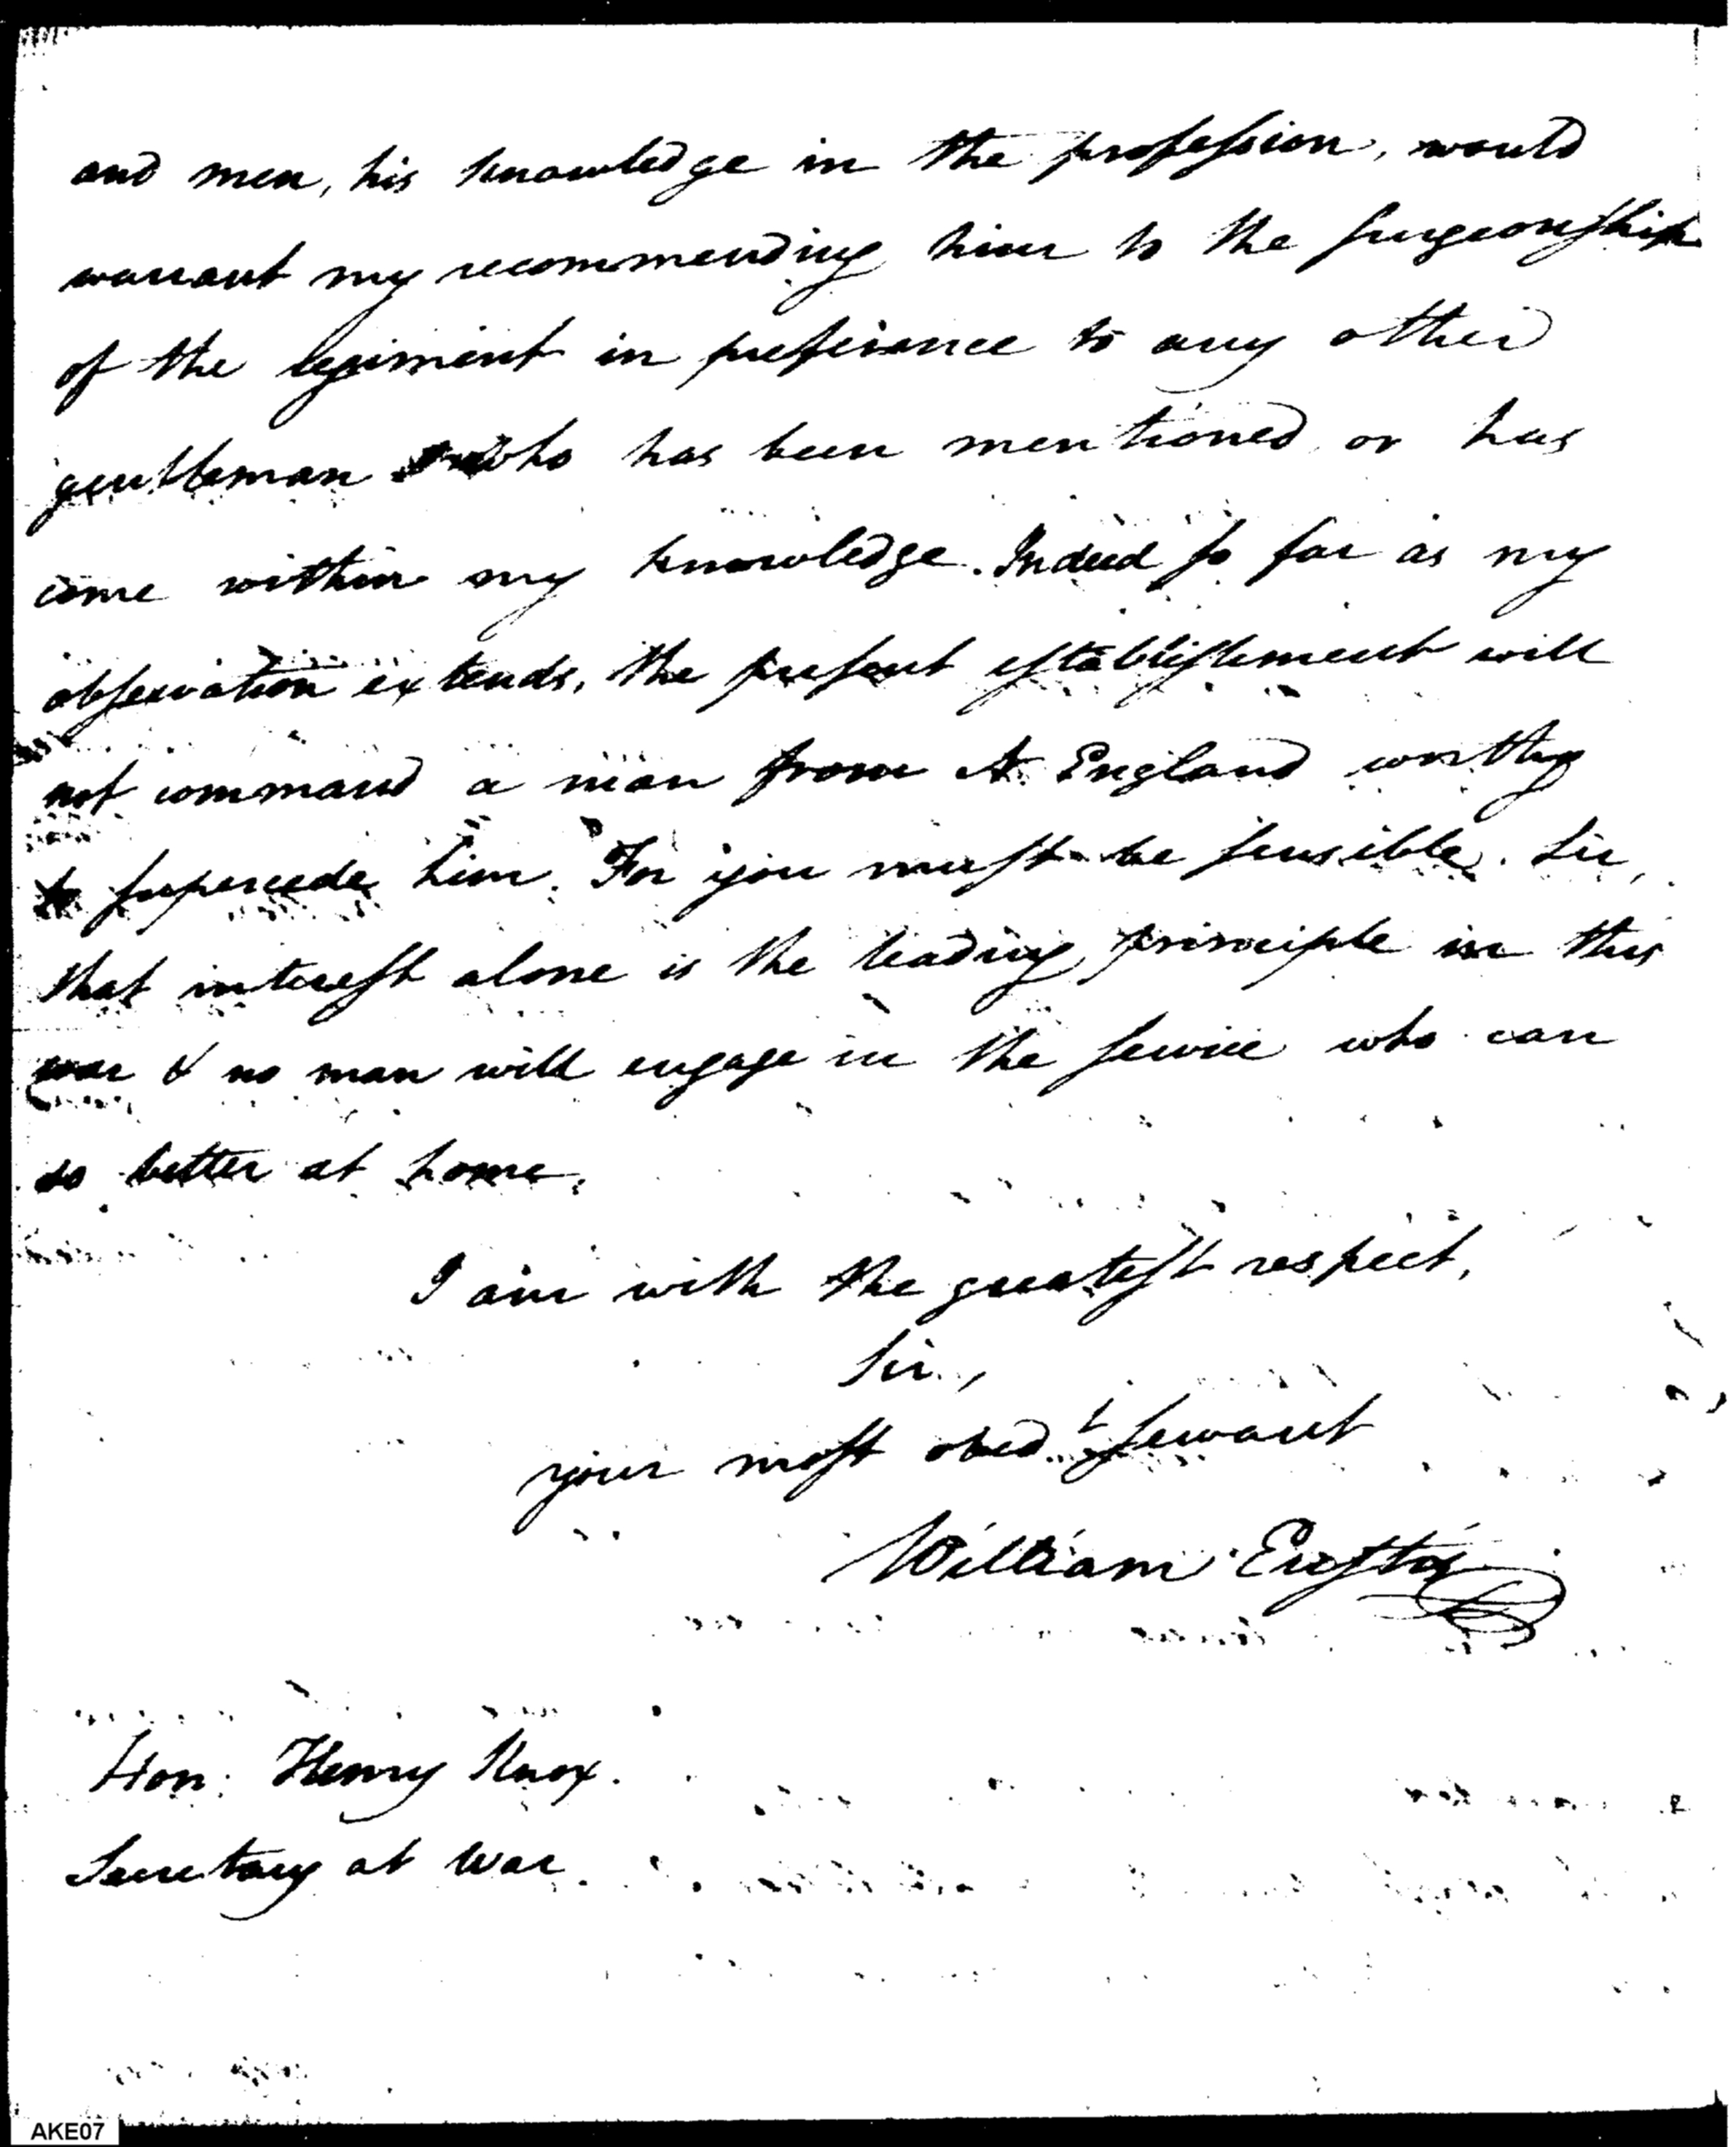 and men, his knowledge in the profession, would
warrant my recommending him to the surgeonship
of the regiment in preferance to any other
gentleman who has been mentioned or has
come within my knowledge. Indeed so far as my
observation extends, the present establishment will
not command a man from N. England worthy
to supercede him. For you must be sensible, Sir,
that interest alone is the leading principle in this
war & no man will engage in the service who can
do better at home.
I am with the greatest respect,
Sir,
your most obedt servant
William Eustis
Hon: Henry Knox.
Secretary at War.
AKE07